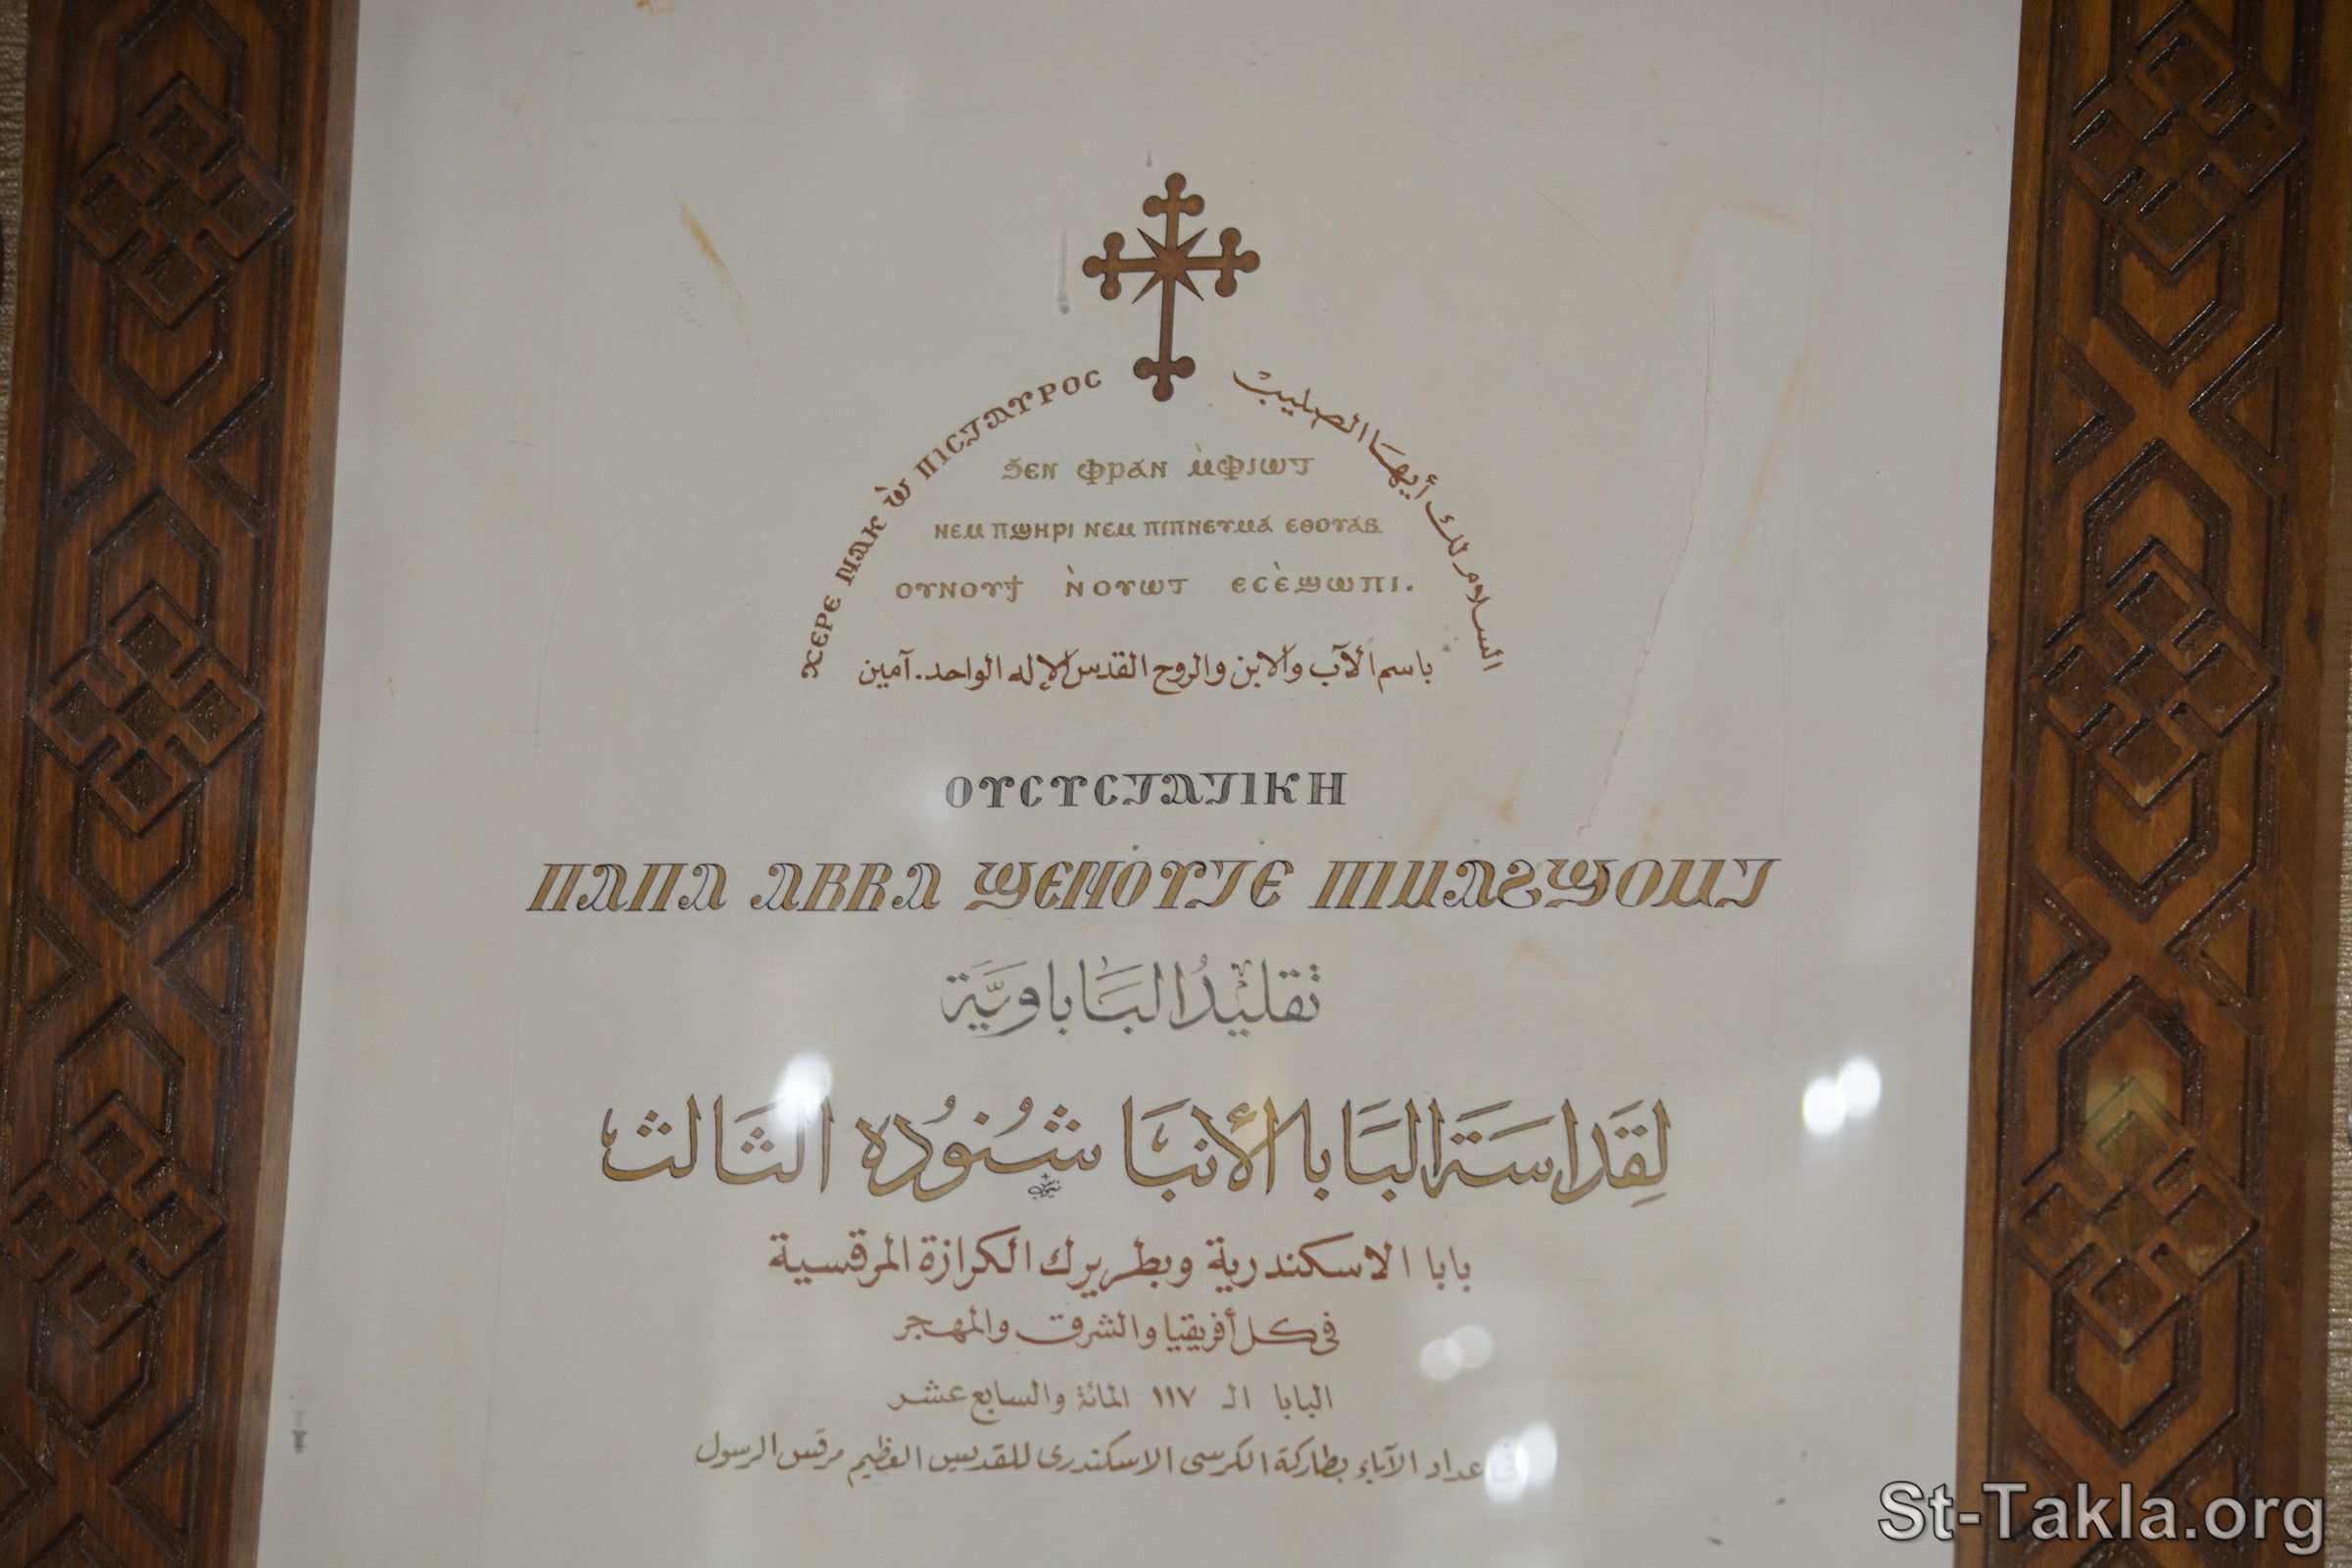 ⲭⲉⲣⲉ ⲛⲁⲕ ⲱ̀ ⲡⲓⲥⲧⲁⲩⲣⲟⲥ
السلام لك أيها الصليب
ϧⲉⲛ ⲫⲣⲁⲛ ⲙ̀ⲫⲓⲱⲧ
ⲛⲉⲙ ⲡϣⲏⲣⲓ ⲛⲉⲙ ⲡⲓⲡⲛⲉⲩⲙⲁ ⲉⲑⲟⲩⲁⲃ
ⲟⲩⲛⲟⲩϯ ⲛ̀ⲟⲩⲱⲧ ⲉⲥⲉ̀ϣⲱⲡⲓ.
باسم الآب والابن والروح القدس الإله الواحد. آمين
ⲞⲨⲤⲨⲤⲦⲀⲦⲒⲔⲎ
ⲠⲀⲠⲀ ⲀⲂⲂⲀ ϢⲈⲚⲞⲨⲦⲈ ⲠⲒⲘⲀϨϢⲞⲘⲦ
تقليدُ البَابَاويَّة
لِقَداسَة البَابَا الأنبَا شنُوده الثَالث
بابا الاسكندرية وبطريرك الكرازة المرقسية
فى كل أفريقيا والشرق والمهجر
البابا الـ ١١٧ المائة والسابع عشر
فى عداد الآباء بطاركة الكرسى الاسكندرى للقديس العظيم مرقس الرسول
St-Takla.org